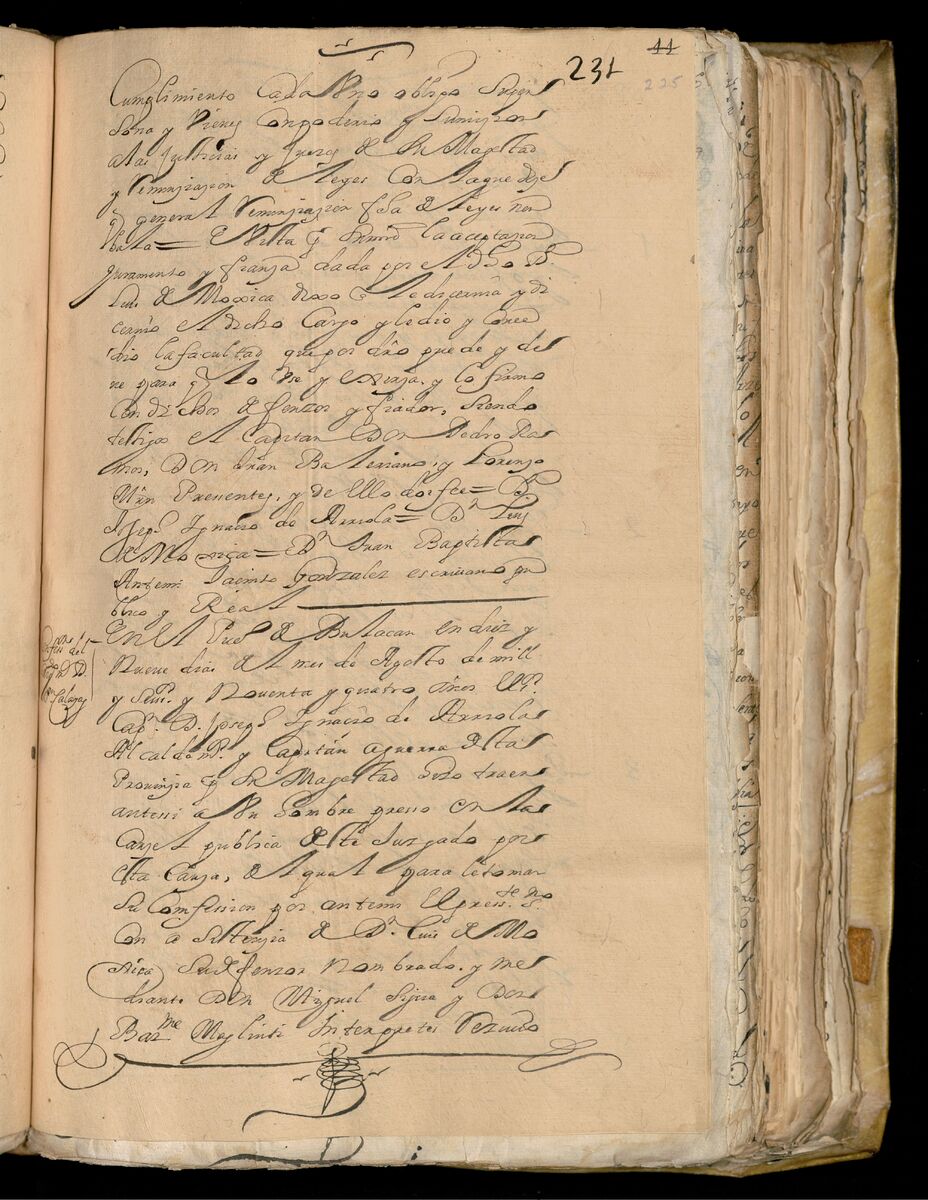 44
231
225
Cumplimiento Cada Uno obligo Su per
sona y Vienes Con poderio y Sumission
a las Justicias y Juezes de Su Magestad
y renunziazion de leyes Con la que
general renunziazion fha de leyes non
bala = E Vista por Su mrd la aceptazion
Juramento y fianza dada por el dho Dn
Luis de Moxica dixo q le dicernia y di
cernio el dicho Cargo y le dio y Conce
dio la facultad que por dro puede y de
ve para q lo Use y exerza. y lo firmo
Con dichos defenzor y fiador, siendo
testigos el Capitan Don Pedro Ra
mos, Don Juan Bateriano, y Lorenzo
Mrn Presentes, y de ello doi fee = Dn
Joseph Ygnacio de Arriola = Dn Luis
de Moxica = Dn Juan Baptista
Antemi Jacinto Gonzalez escrivano pu
blico y Real
En el Puo de Bulacan en diez y
nueve dias del mes de Agosto de mill
y Setzos y Noventa y quatro años El Sr
Capn D. Joseph Ygnacio de Arriola
Alcalde mr. y Capitan aguerra desta
Provinzia por Su Magestad hizo traer
antesi a Un hombre preso en la
Carzel publica deste Juzgado por
esta Cauza, del qual para le tomar
Su Comfission por antemi El presste Sno
Con asistenzia de Dn Luis de Mo
xica Su defenzor nombrado. y me
diante Don Miguel y Don
Barme Interpretes